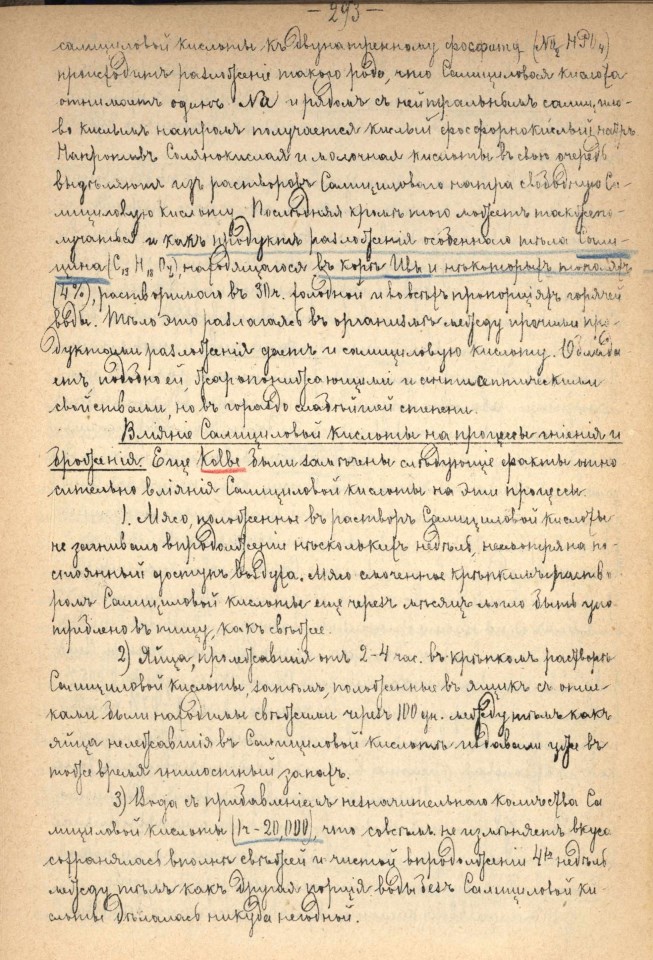 — 293 —
салициловой кислоты къ двунатренному фосфату (Na₂HPO₄)
происходитъ разложеніе такого рода, что Салициловая кислота
отнимаетъ одинъ Na и рядомъ съ нейтральнымъ салицило-
во кислымъ натромъ получается кислый фосфорнокислый натръ
Напротивъ Солянокислая и молочная кислоты въ свою очередь
выдѣляютъ изъ растворовъ Салициловаго натра свободную Са-
лициловую кислоту. Послѣдняя кромѣ того можетъ также по-
лучаться и какъ продуктъ разложенія особеннаго тѣла Сали-
цина (C₁₃ H₁₈ O₇), находящагося въ корѣ Ивы и нѣкоторыхъ тополяхъ
(4%), растворимаго въ 30 ч. холодной и во всѣхъ пропорціяхъ горячей
воды. Тѣло это разлагаясь въ организмѣ между прочими про-
дуктами разложенія даетъ и салициловую кислоту. Облада
етъ, подобно ей, жаропонижающими и антисептическими
свойствами, но въ гораздо слабѣйшей степени.
Вліяніе Салициловой кислоты на процессы гніенія и
броженія. Еще Kolbe были замѣчены слѣдующіе факты отно
сительно вліянія Салициловой кислоты на эти процессы.
1. Мясо, положенное въ растворъ Салициловой кислоты
не загнивало впродолженіе нѣсколькихъ недѣль, несмотря на по-
стоянный доступъ воздуха. Мясо смоченное крѣпкимъ раство-
ромъ Салициловой кислоты еще черезъ мѣсяцъ могло быть упо-
треблено въ пищу, какъ свѣжее.
2) Яйца, пролежавшія отъ 2-4 час. въ крѣпкомъ растворѣ
Салициловой кислоты, затѣмъ, положенные въ ящикъ съ опил-
ками были находимы свѣжими черезъ 100 дн. между тѣмъ какъ
яйца не лежавшія въ Салициловой кислотѣ издавали уже въ
тоже время гнилостный запахъ.
3) Вода съ прибавленіемъ незначительнаго количества Са
лициловой кислоты (1ч-20,000), что совсѣмъ не измѣняетъ вкуса
сохранялась вполнѣ свѣжей и чистой впродолженіи 4хъ недѣль
между тѣмъ какъ другая порція воды безъ Салициловой ки-
слоты дѣлалась никуда негодной.